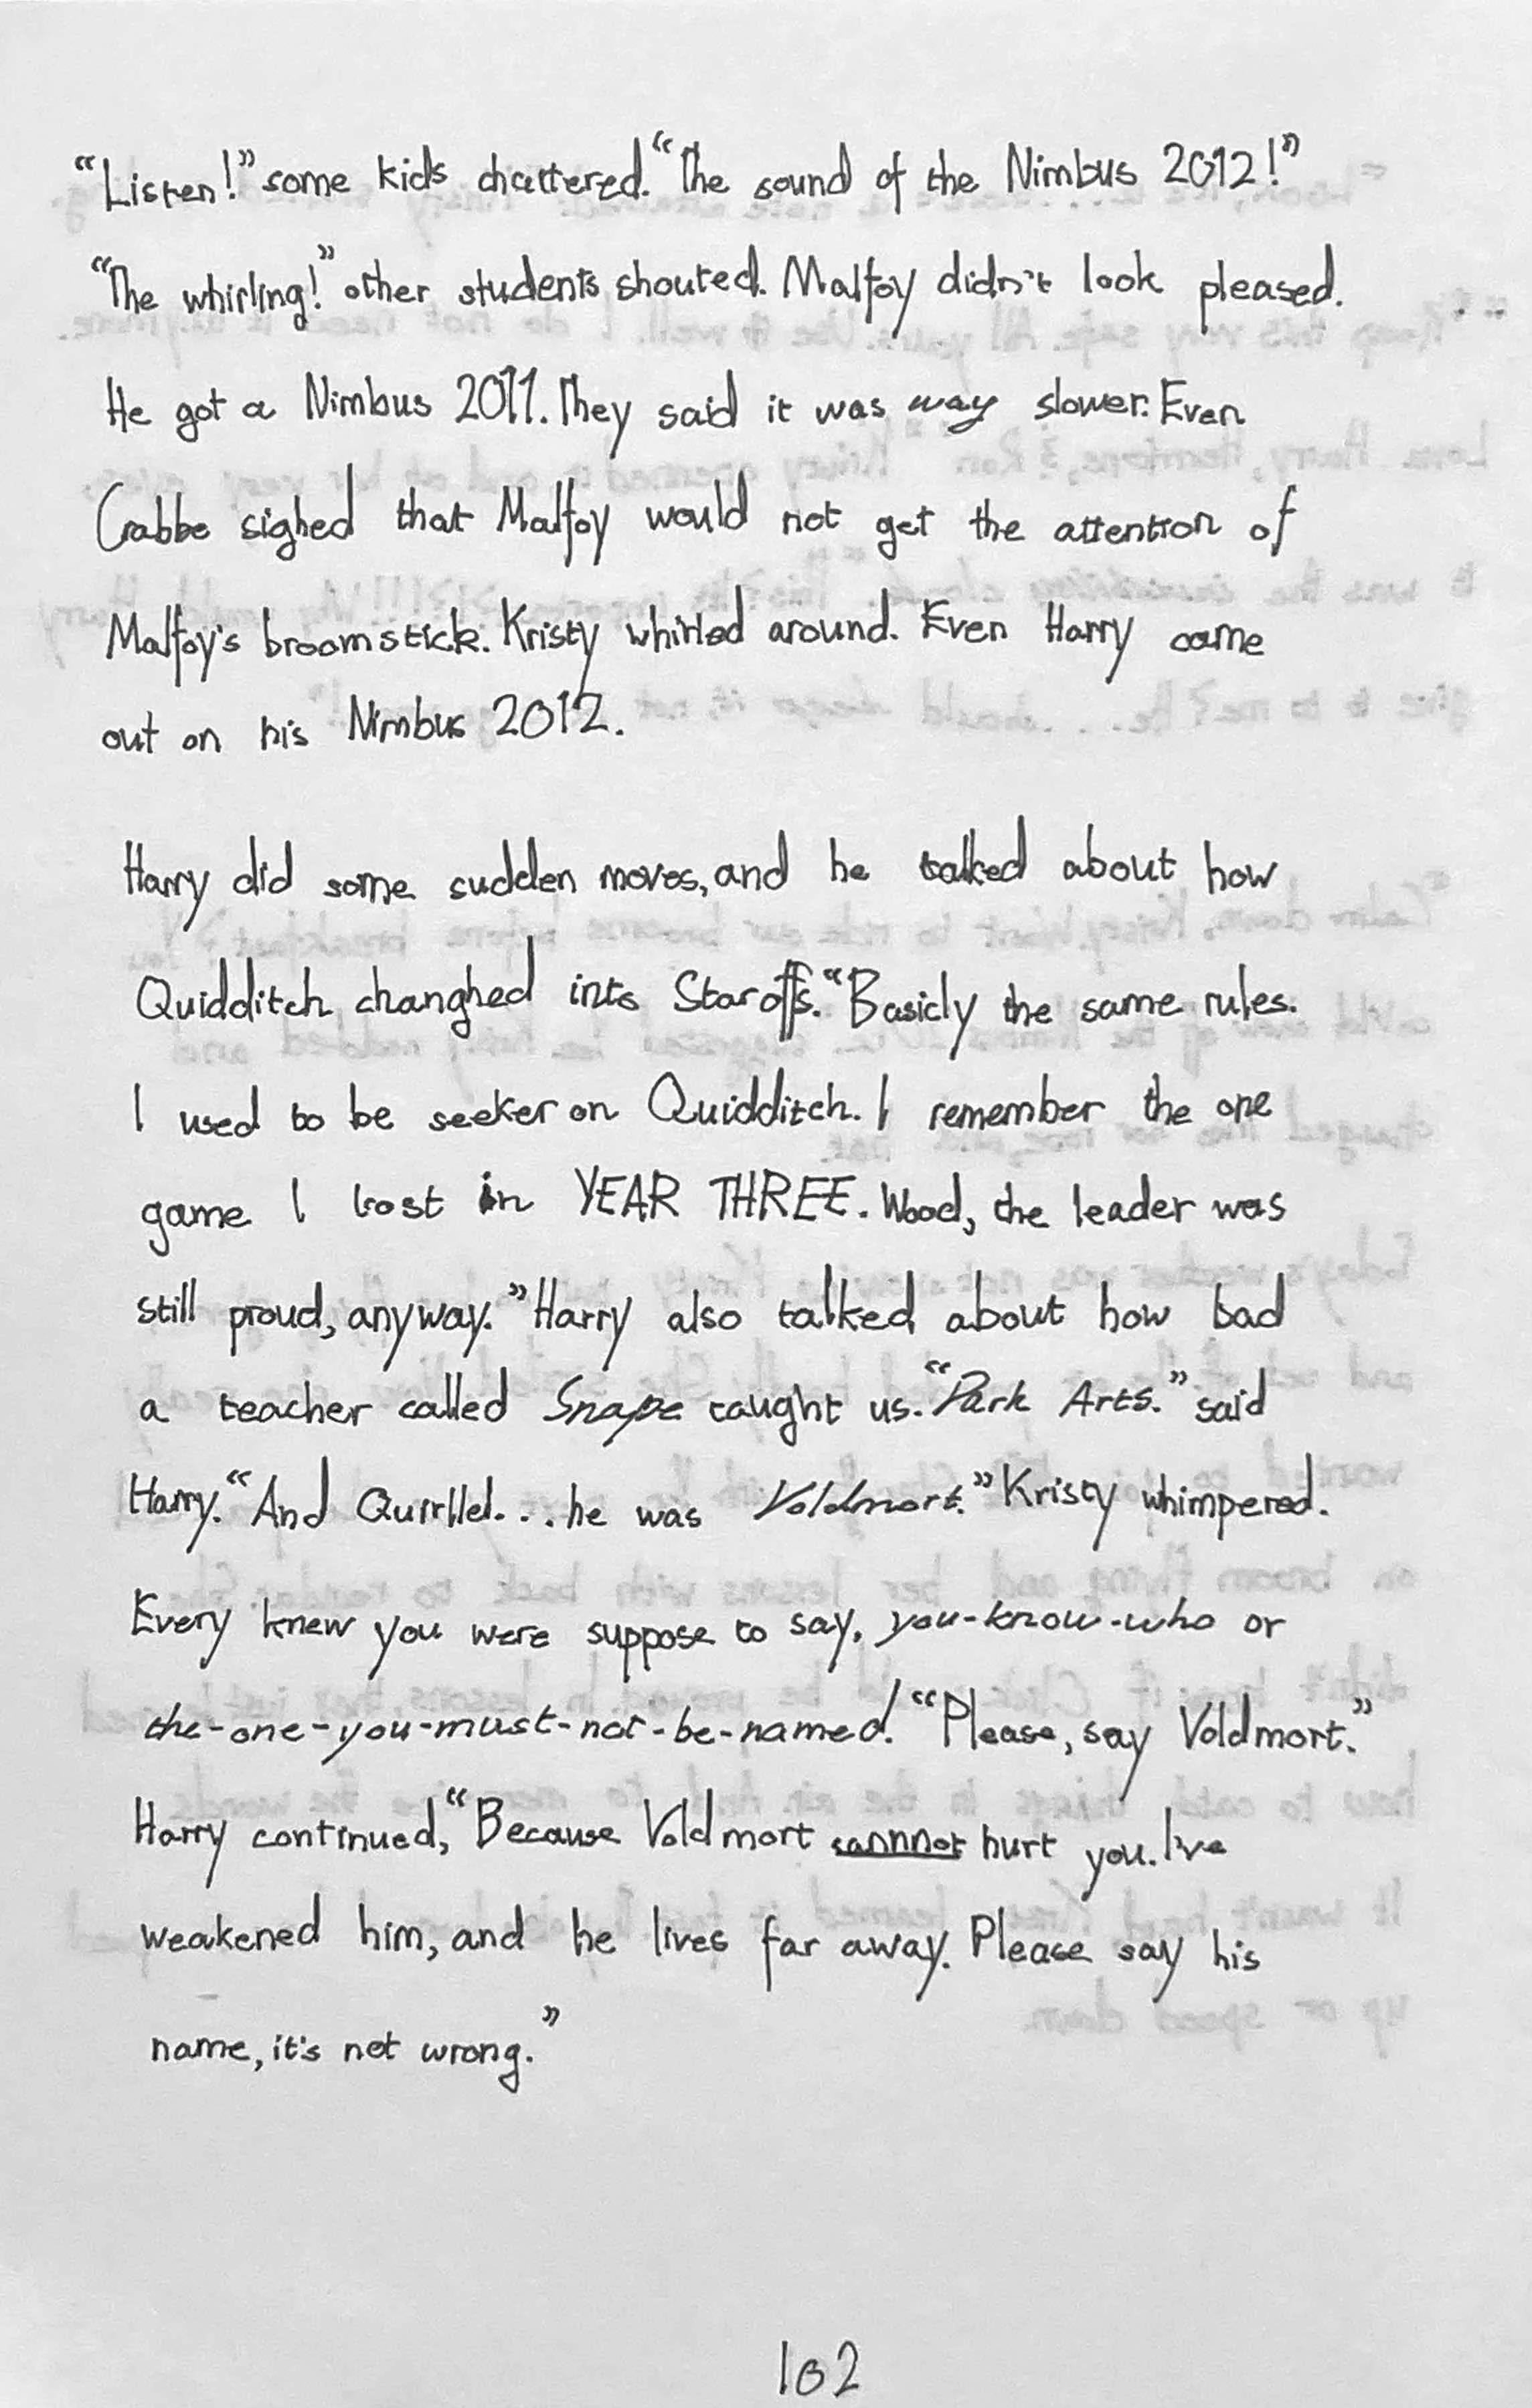 “Listen!” some kids chattered. “The sound of the Nimbus 2012!”
“The whirling!” other students shouted. Malfoy didn't look pleased.
He got a Nimbus 2011. They said it was way slower. Even
Crabbe sighed that Malfoy would not get the attention of
Malfoy's broomstick. Kristy whirled around. Even Harry came
out on his Nimbus 2012.
Harry did some sudden moves, and he talked about how
Quidditch changhed into Staroffs. “Basicly the same rules.
I used to be seeker on Quidditch. I remember the one
game I lost in YEAR THREE. Wood, the leader was
still proud, anyway.” Harry also talked about how bad
a teacher called Snape taught us. “Dark Arts.” said
Harry. “And Quirllel... he was Voldmort.” Kristy whimpered.
Every knew you were suppose to say, you-know-who or
the-one-you-must-not-be-named. “Please, say Voldmort.”
Harry continued, “Because Voldmort cannnot hurt you. I've
weakened him, and he lives far away. Please say his
name, it's not wrong.”
102